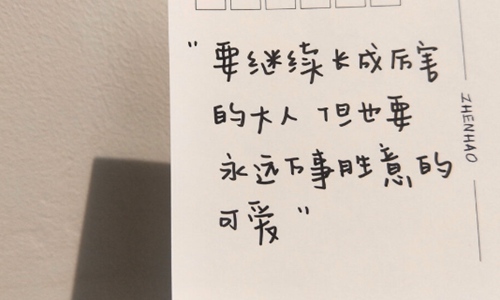 "要继续长成厉害
的大人 但也要
永远万事胜意的
可爱"
ZHENHAO